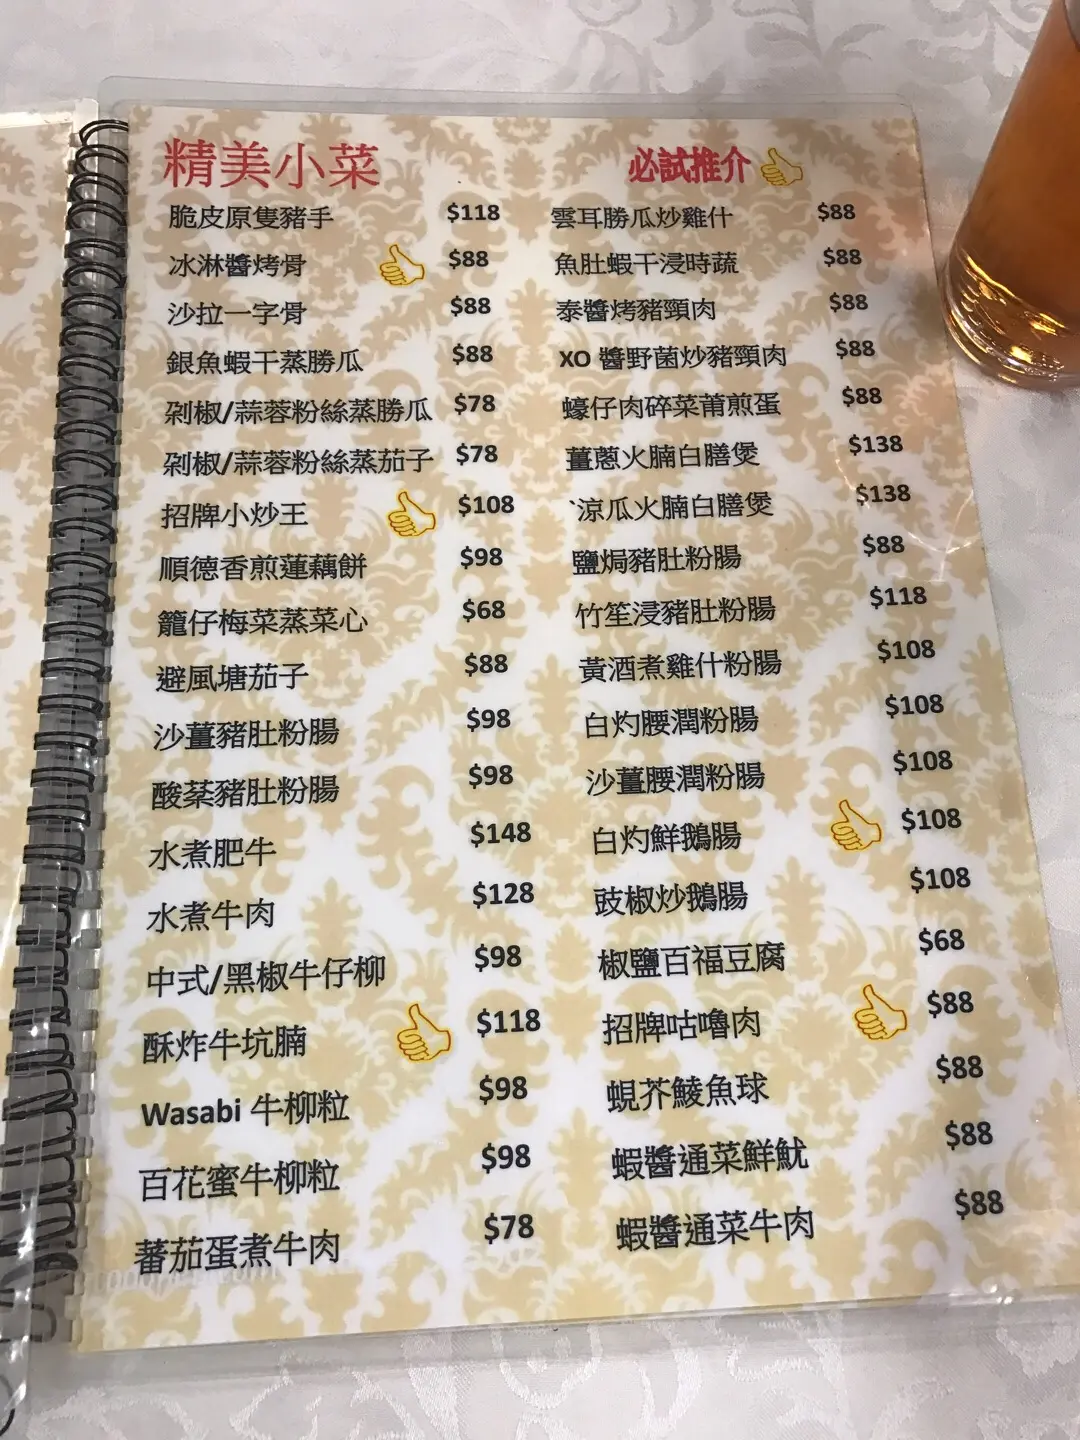 精美小菜
脆皮原隻豬手 $118
冰淋醬烤骨 $88
沙拉一字骨 $88
銀魚蝦干蒸勝瓜 $88
剁椒/蒜蓉粉絲蒸勝瓜 $78
剁椒/蒜蓉粉絲蒸茄子 $78
招牌小炒王 $108
順德香煎蓮藕餅 $98
籠仔梅菜蒸菜心 $68
避風塘茄子 $88
沙薑豬肚粉腸 $98
酸菜豬肚粉腸 $98
水煮肥牛 $148
水煮牛肉 $128
中式/黑椒牛仔柳 $98
酥炸牛坑腩 $118
Wasabi 牛柳粒 $98
百花蜜牛柳粒 $98
蕃茄蛋煮牛肉 $78
必試推介
雲耳勝瓜炒雞什 $88
魚肚蝦干浸時蔬 $88
泰醬烤豬頸肉 $88
XO 醬野菌炒豬頸肉 $88
蠔仔肉碎菜莆煎蛋 $88
薑蔥火腩白膳煲 $138
`涼瓜火腩白膳煲 $138
鹽焗豬肚粉腸 $88
竹笙浸豬肚粉腸 $118
黃酒煮雞什粉腸 $108
白灼腰潤粉腸 $108
沙薑腰潤粉腸 $108
白灼鮮鵝腸 $108
豉椒炒鵝腸 $108
椒鹽百福豆腐 $68
招牌咕嚕肉 $88
蜆芥鯪魚球 $88
蝦醬通菜鮮魷 $88
蝦醬通菜牛肉 $88